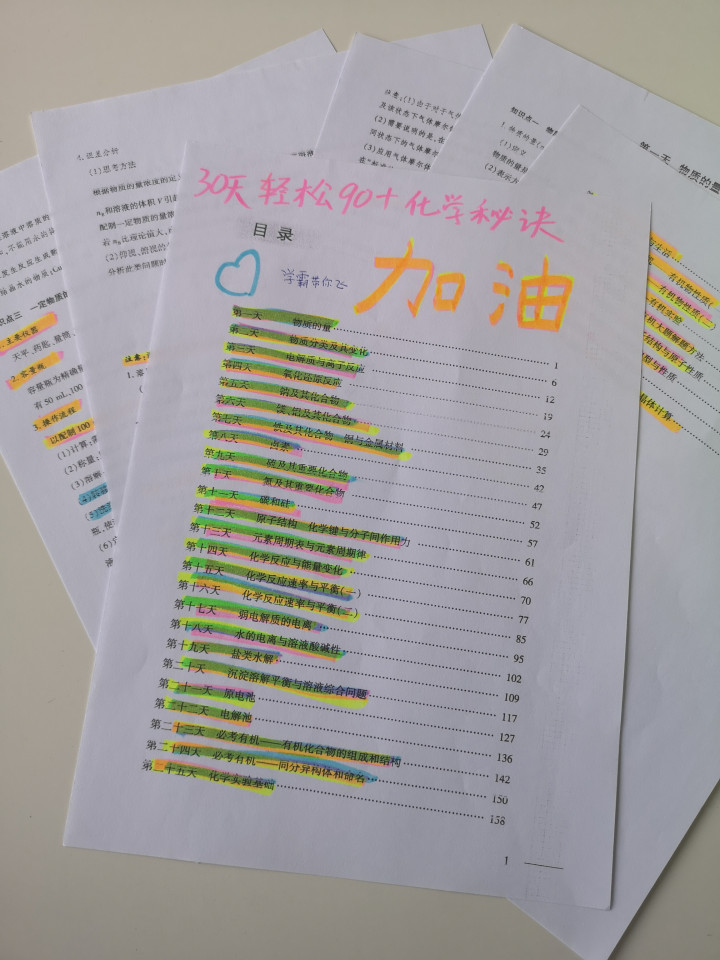 30天轻松90+化学秘诀
目录
加油
学霸带你飞
第一天 物质的量 1
第二天 物质分类及其变化 6
第三天 电解质与离子反应 12
第四天 氧化还原反应 19
第五天 钠及其化合物 24
第六天 镁、铝及其化合物 29
第七天 铁及其化合物 铜与金属材料 35
第八天 卤素 42
第九天 硫及其重要化合物 47
第十天 氮及其重要化合物 52
第十一天 碳和硅 57
第十二天 原子结构 化学键与分子间作用力 61
第十三天 元素周期表与元素周期律 66
第十四天 化学反应与能量变化 70
第十五天 化学反应速率与平衡(一) 77
第十六天 化学反应速率与平衡(二) 85
第十七天 弱电解质的电离 95
第十八天 水的电离与溶液酸碱性 102
第十九天 盐类水解 109
第二十天 沉淀溶解平衡与溶液综合问题 117
第二十一天 原电池 127
第二十二天 电解池 136
第二十三天 必考有机——有机化合物的组成和结构 142
第二十四天 必考有机——同分异构体和命名 150
第二十五天 化学实验基础 158
1
4. 误差分析
(1)思考方法
根据物质的量浓度的定义
和溶液的体积V引起
配制一定物质的量浓
(2)仰视、俯视的
分析此类问题时
识点三 一定物质的
1. 主要仪器
天平、药匙、量筒、
2. 容量瓶
容量瓶为精确
有50 mL、100
3. 操作流程
以配制100
(1)计算:需
(2)称量:
(3)溶解
注意:(1)由于对于气
及该状态下气体摩尔
(2)需要说明的是,在
同状态下的气体摩尔
(3)应用气体摩尔体
知识点一 物
物质的量
(2)表示方
第一天 物质的量
与生活
有机物性质(
有机物性质(二
有机实验
结构与原子性质
与性质
晶体计算